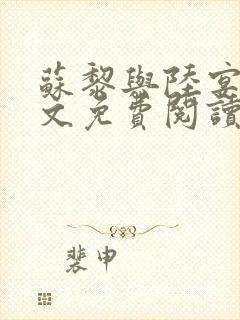 蘇黎與陸宴
文免費閱讀
裴申